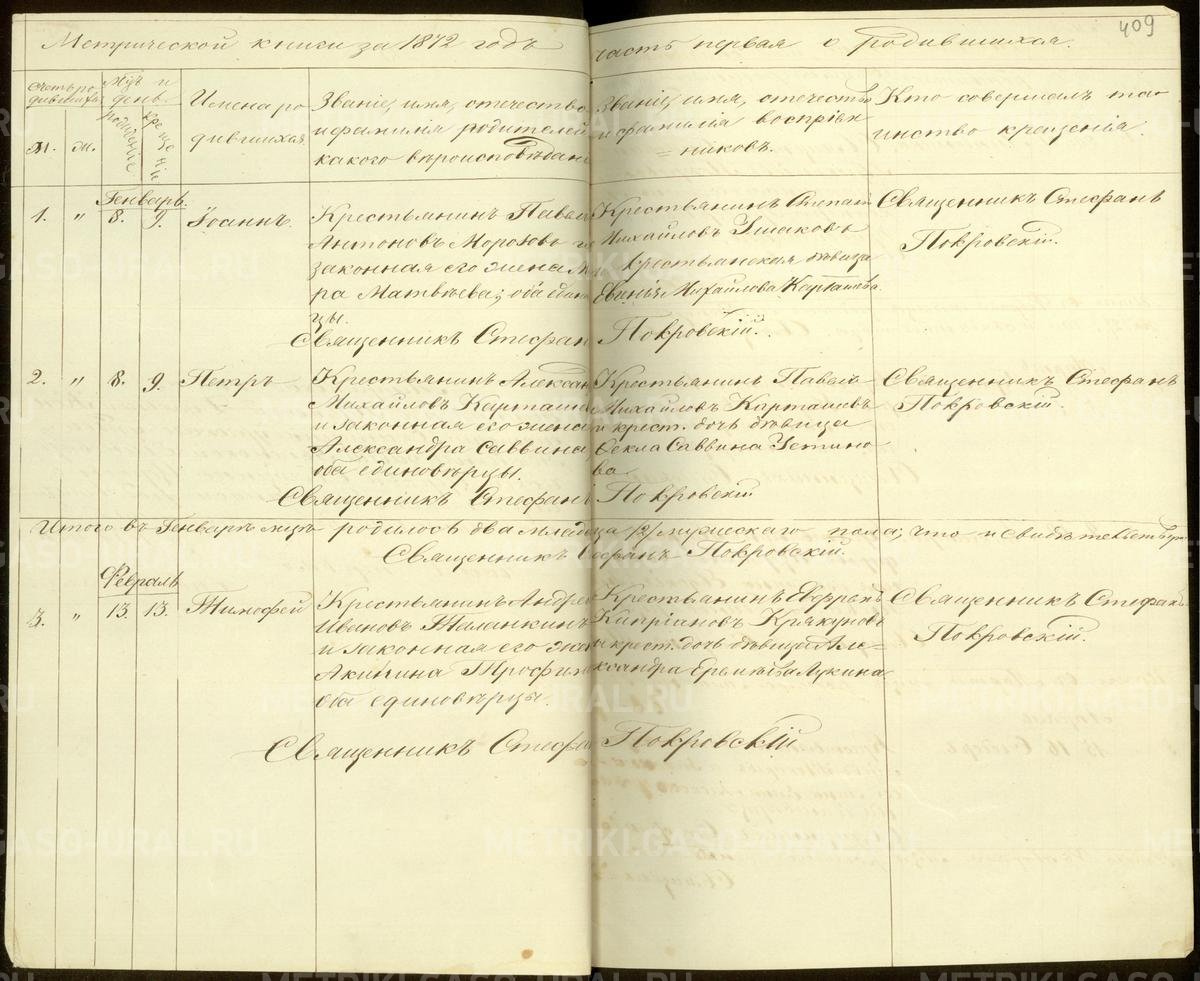 409
Метрической книги за 1872 годъ часть первая о родившихся.
Счетъ родившихся
Мцъ и день
рожденіе
крещеніе
м. ж.
Имена родившихся
Званіе, имя, отечество
и фамилія родителей
какого вѣроисповѣдан
Званіе, имя, отечество
и фамилія воспріем
никовъ.
Кто совершалъ та
инство крещенія.
Генварь.
1. " 8. 9. Іоаннъ.
Крестьянинъ Павел
Антоновъ Морозовъ и
законная его жена М
ра Матвѣева; оба едино
цы.
Крестьянинъ
Михайловъ Ушаковъ
и крестьянская дѣвица
Михайлова Карташева.
Священникъ Стефанъ
Покровскій.
Священникъ Стефан Покровскій.
2. " 8. 9. Петръ
Крестьянинъ Алексан
Михайловъ Карташев
и законная его жена
Александра Саввина
оба единовѣрцы.
Крестьянинъ Павел
Михайловъ Карташевъ
и крест. дочь дѣвица
Фекла Саввина Устино
ва
Священникъ Стефанъ
Покровскій.
Священникъ Стефанъ Покровскій
Итого въ Генварѣ мцѣ родилось два младенца /2/ мужескаго пола; что и свидѣтельствую
Священникъ Стефанъ Покровскій.
Февраль
3. " 13. 13. Тимофей
Крестьянинъ Андрей
Ивановъ Таланкинъ
и законная его жена
Акилина Трофим
оба единовѣрцы.
Крестьянинъ Ефремъ
Кипріановъ Крякуновъ
и крест. дочь дѣвица Але=
ксандра Еремѣева Лукина
Священникъ Стефанъ
Покровскій.
Священникъ Стефан Покровскій
METRIKI.GASO-URAL.RU